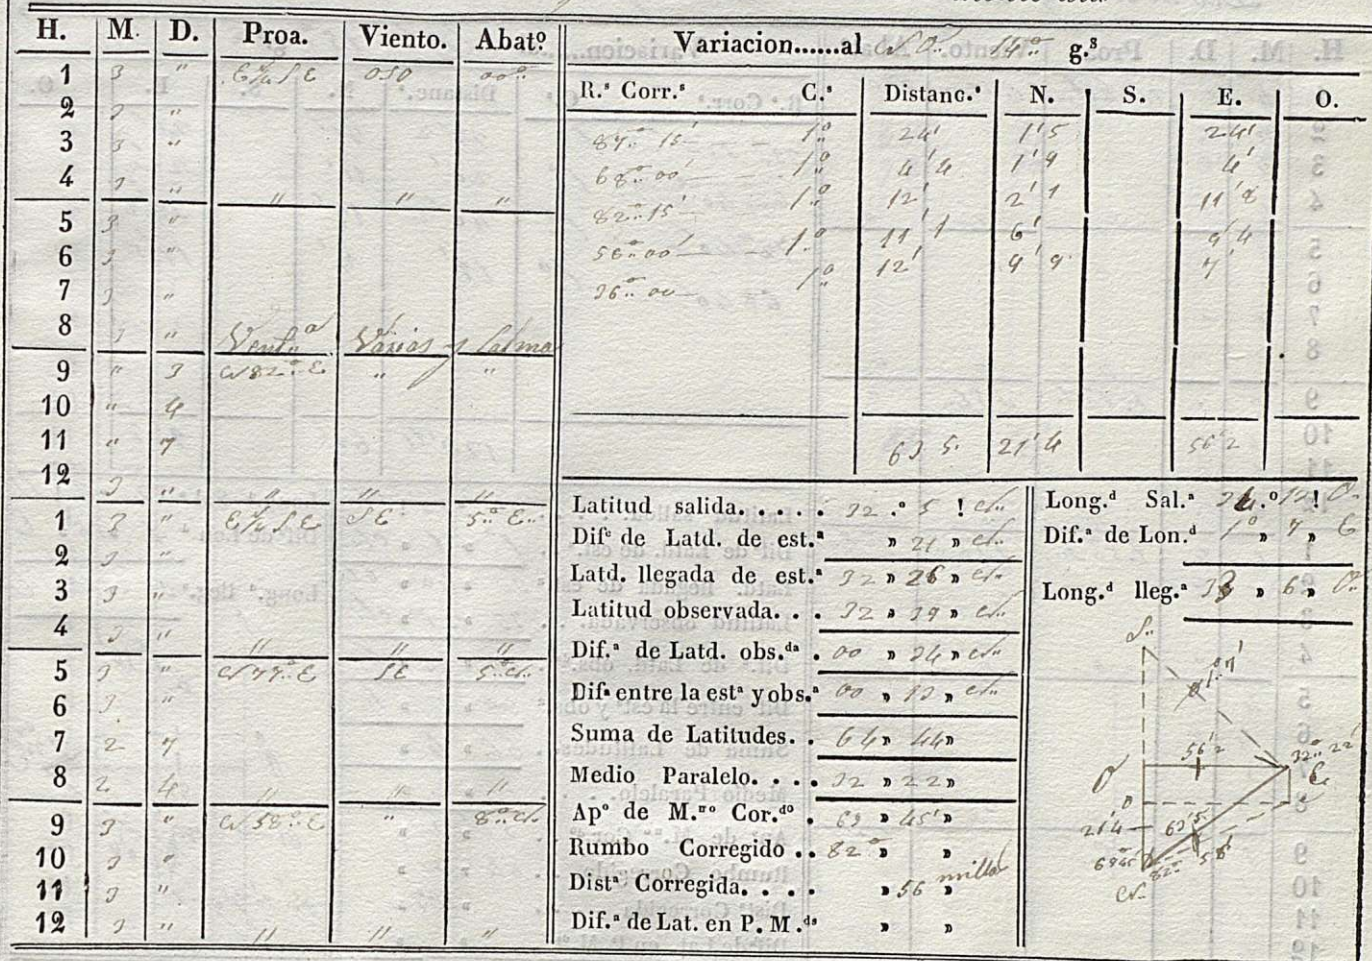 H. M. D. Proa. Viento. Abatº
1 3 " E¼SE OSO 00º
2 3 "
3 3 "
4 3 " " " "
5 3 "
6 3 "
7 3 "
8 3 " Ventª Varios y Calma
9 " 3 N82ºE " "
10 " 4
11 " 7
12 3 " " " "
1 3 " E¼SE SE 5º
2 3 "
3 3 "
4 3 " " " "
5 3 " N77ºE SE 5º
6 3 "
7 2 7
8 2 4 " "
9 3 " N58ºE " 8º
10 3 "
11 3 "
12 3 " " " "
Variacion......al NO. g.ˢ
R.ˢ Corr.ˢ C.ˢ Distanc.ˢ N. S. E. O.
87º 15' 1º 24' 1'5 24'
68º 00' 1º 4'4 1'9 4'
82º 15' 1º 12' 2'1 11'8
56º 00' 1º 11'1 6' 9'4
36º 00 1º 12' 9'9 7'
63 5. 21'4 56'2
Latitud salida. . . . 32 .º 5 ! N.
Difᵉ de Latd. de est.ª " 21 " N.
Latd. llegada de est.ª 32 " 26 " N.
Latitud observada. . . 32 " 39 " N.
Dif.ª de Latd. obs.ᵈᵃ . 00 " 34 " N.
Difª entre la estª y obs.ª 00 " 13 " N.
Suma de Latitudes. . 64 " 44 "
Medio Paralelo. . . . 32 " 22 "
Apº de M.ⁿᵒ Cor.ᵈᵒ . 69 " 45' "
Rumbo Corregido . . 82º " "
Distª Corregida. . . . " 56 " millas
Dif.ª de Lat. en P. M.ᵈˢ " "
Long.ᵈ Sal.ª 34 .º 13 ! O.
Dif.ª de Lon.ᵈ 1º " 7 " E
Long.ᵈ lleg.ª 33 " 6 " O.
S.
1º 7'
56'2
32º 22'
O E.
21'4 63'5
82º
N.